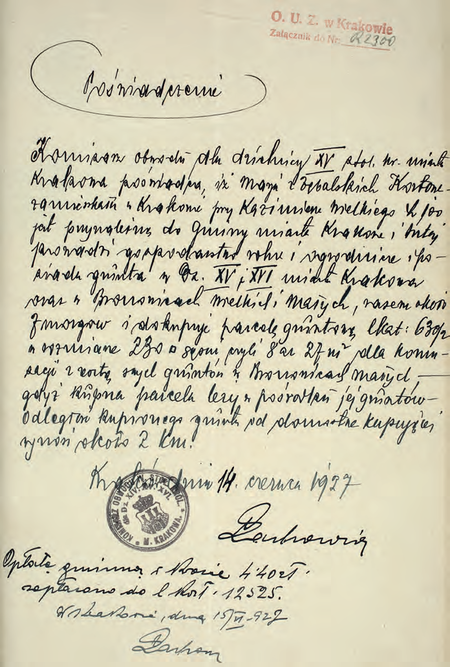 O. U. Z. w Krakowie
Załącznik do Nr. 22300
Poświadczenie
Komisarz obwodu dla dzielnicy XV stoł. kr. miasta
Krakowa poświadcza, iż Marja z Rybalskich
zamieszkała w Krakowie przy Kazimierza Wielkiego L 100
jest przynależną do Gminy miasta Krakowa i tutaj
prowadzi gospodarstwo rolne i ogrodnicze i po-
siada grunta w Dz. XV i XVI miasta Krakowa
oraz w Bronowicach Wielkich i Małych, razem około
7 morgów i dokupuje parcelę gruntową lkat: 630/2
o rozmiarze 230 □ sążni czyli 8 ar 27 m² dla koma-
sacji z resztą swych gruntów w Bronowicach małych —
gdyż kupna parcela leży w pośrodku jej gruntów-
Odległość kupionego gruntu od domostwa kupującej
wynosi około 2 km.
Kraków dnia 14 czerwca 1927
KOMISARZ OBWODU
M. KRAKOWA
Opłatę gminną w kwocie 440 zł.
zapłacono do l. 12525.
W Krakowie, dnia 15/VI 927